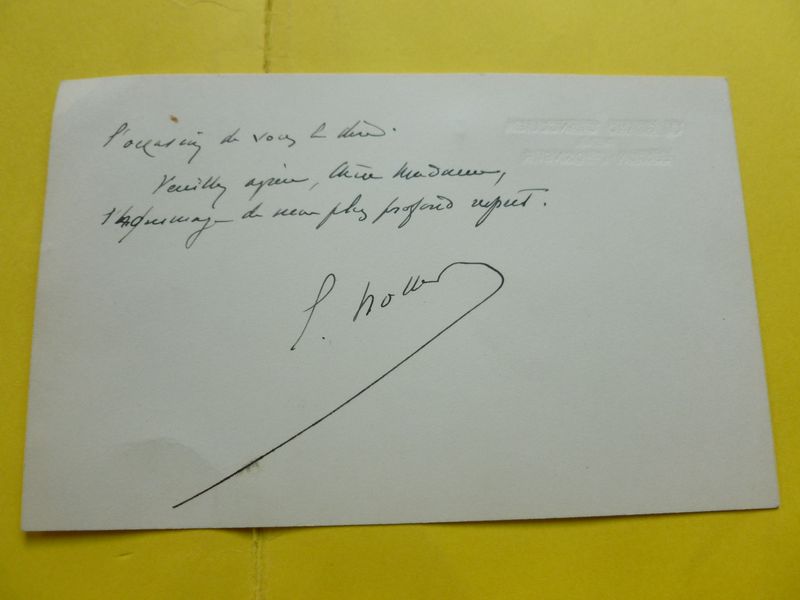 l'occasion de vous le dire.
Veuillez agréer, Chère Madame,
l'hommage de mon plus profond respect.